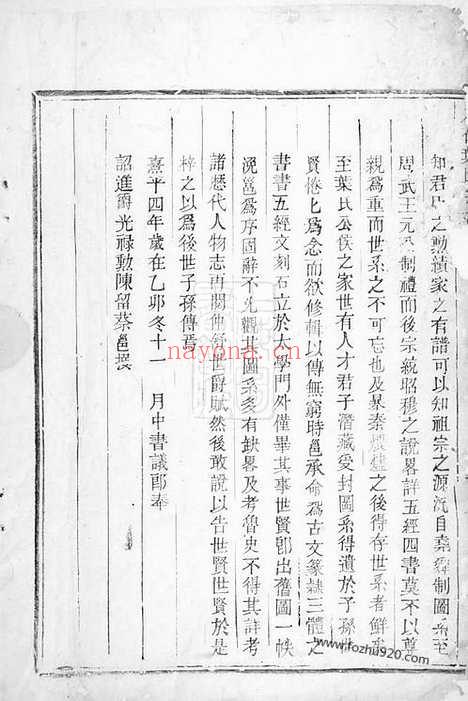 知君氏之勳績家之有譜可以知祖宗之源流自堯舜制圖系至
周武王元公制禮而後宗統昭穆之說畧詳五經四書莫不以尊
親爲重而世系之不可忘也及暴秦煨燼之後得存世系者鮮矣
至葉氏公侯之家世有人才君子潛藏受封圖系得遺於子孫世
賢惓匕爲念而欲修輯以傳無窮時邕承命爲古文篆隸三體之
書書五經文刻石立於大學門外僅畢其事世賢卽出舊圖一帙
浼邕爲序固辭不允觀其圖系多有缺畧及考魯史不得其詳考
諸歷代人物志再閱仲 世爵賦然後敢說以告世賢世賢於是
梓之以爲後世子孫傳焉
熹平四年歲在乙卯冬十一 月中書議郎奉
詔進爵光祿勳陳留蔡邕撰
nayona.cn
www.fozhu920.com